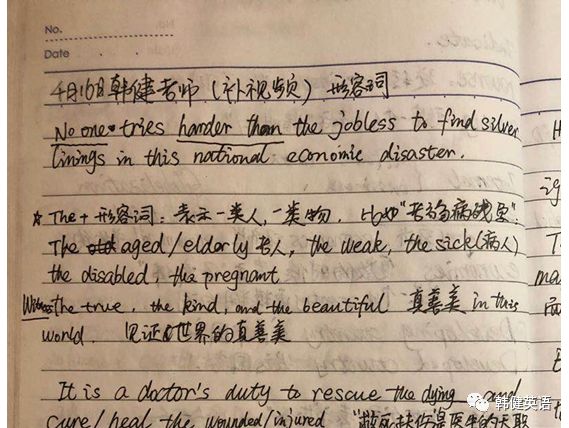 No.
Date
4月16日韩健老师(补视频) 形容词
No one tries harder than the jobless to find silver
linings in this national economic disaster.
☆ The + 形容词:表示一类人,一类物,比如"老弱病残孕"
The aged/elderly 老人, the weak, the sick(病人)
the disabled, the pregnant
Witness the true, the kind, and the beautiful 真善美 in this
world. 见证世界的真善美
It is a doctor's duty to rescue the dying and
cure/heal the wounded/injured "救死扶伤是医生的天职
韩健英语